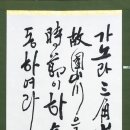 가노라 三角
故國山川을
時節이 하
동하여라